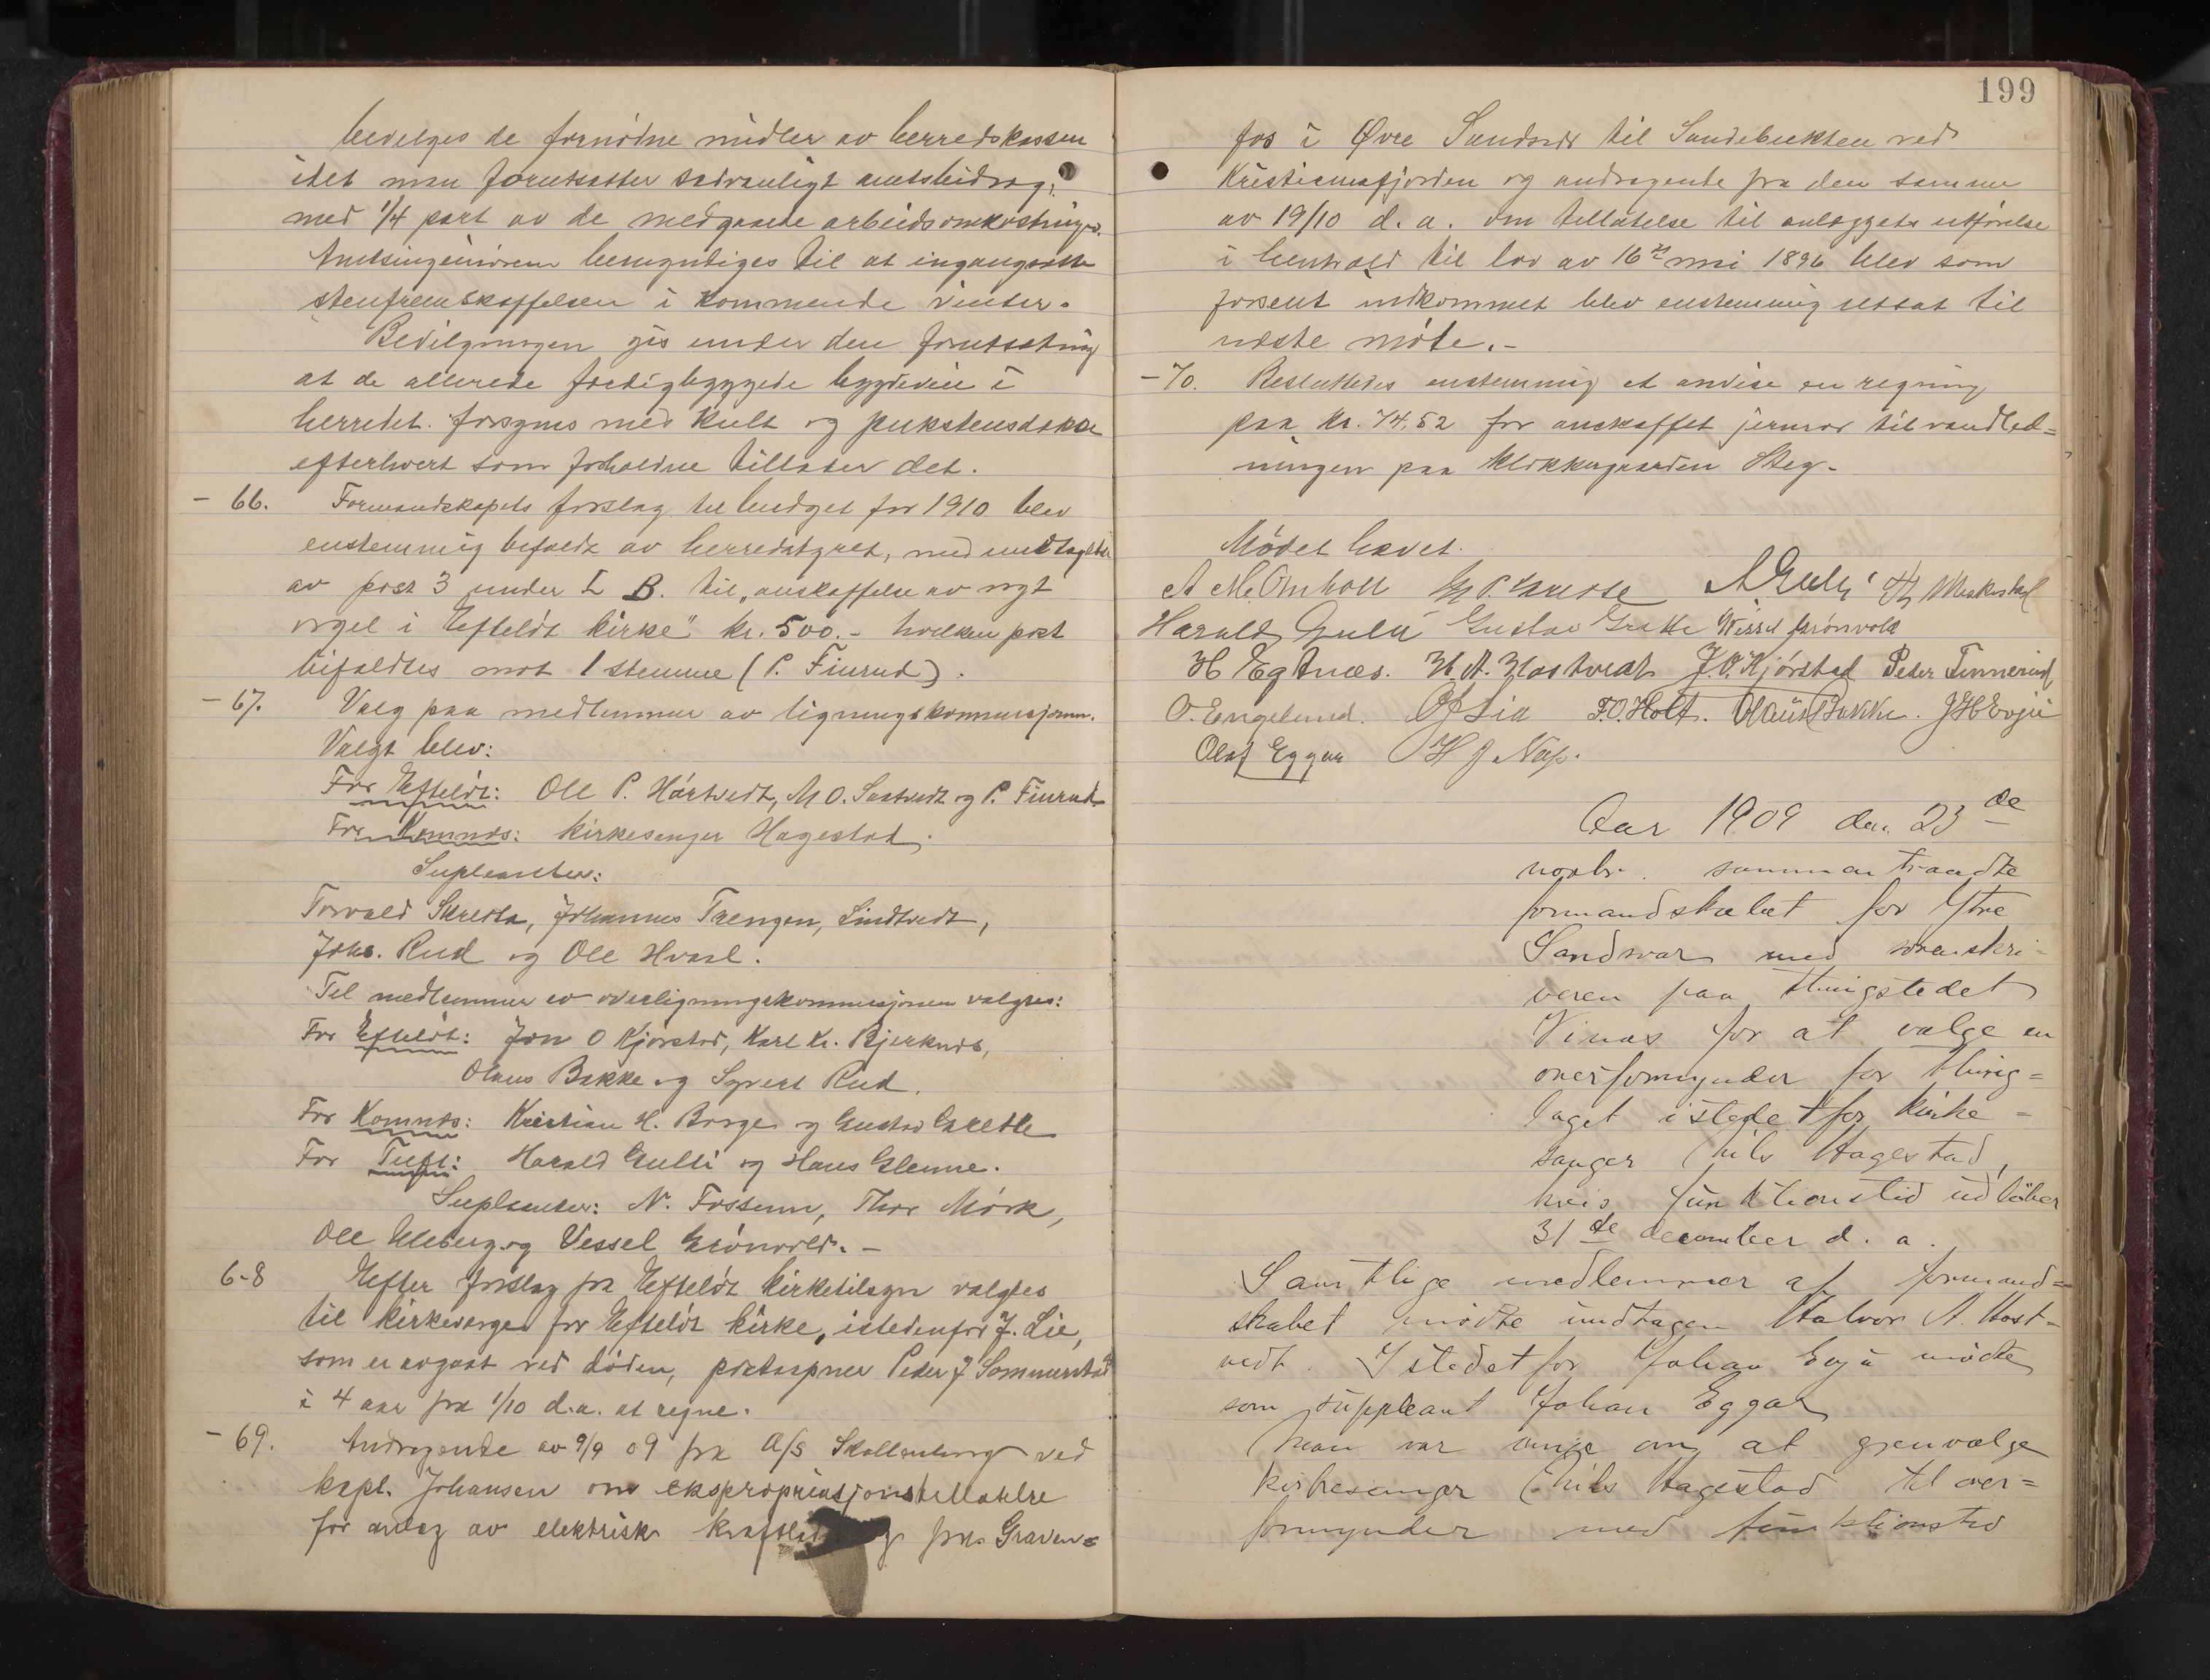 bevilges de fornødne midler av herredskassen
idet man forutsætter sedvanligt amtsbidrag,
med 1/4 part av de medgaaede arbeidsomkostninger.
Amtsingeniøren bemyndiges til at ingangsætte
stenfremskaffelsen i kommende vinter.
Bevilgningen gis under den forutsætning
at de allerede færdigbyggede bygdeveie i
herredet forsynes med kult og pukstensdække
efterhvert som forholdene tillater det.
- 66. Formandskapets forslag til budget for 1910 blev
enstemmig bifaldt av herredstyret, med undtagelse
av post 3 under I B. til "anskaffelse av nyt
orgel i Efteløt kirke" kr. 500.- hvilken post
bifaldtes mot 1 stemme (P. Finrud).
- 67. Valg paa medlemmer av ligningskommissjonen.
Valgt blev:
For Efteløt: Ole P. Hørtvedt, M O. Sastvedt og P. Finrud
For Komnes: Kirkesanger Hagestad.
Supleanter:
Torvald Skretta, Johannes Trengen, Lindtvedt,
Johs. Rud og Ole Hvasl.
Til medlemmer av overligningskommissjonen valgtes:
For Efteløt: Jon O Kjørstad, Karl Kr. Bjerknes,
Olaus Bakke og Syvert Rud.
For Komnes: Kristian H. Borge og Gustav Grette
For Tuft: Harald Gulli og Hans Glenne.
Supleanter: N. Fossum, Thor Mørk,
Ole Ueberg og Vessel Grønvold. -
6-8 Efter forslag fra Efteløt kirketilsyn valgtes
til kirkeverge for Efteløt kirke, istedenfor J. Lie,
som er avgaat ved døden, postaapner Peder J Sommerstad
i 4 aar fra 1/10 d.a. at regne.
- 69. Andragende av 9/9 09 fra A/S Skollenborg ved
kapt. Johansen om ekspropriasjonstillatelse
for anlæg av elektrisk fra Graven=
199
fos i Øvre Sandsvær til Sandebukten ved
Kristianiafjorden og andragende fra den samme
av 19/10 d. a. om tillatelse til anlæggets utførelse
i henhold til lov av 16de mai 1896 blev som
forsent indkommet blev enstemmig utsat til
næste møte. -
- 70. Besluttedes enstemmig at anvise en regning
paa kr. 74,52 for anskaffet jernrør til vandled=
ningen paa klokkergaarden Steg.
Mødet hævet.
A M. Omholt A Gulli
Harald Gulli Gustav Grette Wessel Grønvold
H Eg tnes. H. A. Hostvedt J. O. Kjørstad Peder Finnerud
O. Engelund. O J Lia F. O. Holt. Olaus Bakke. J H Evju
Olaf Eggar H J Næss.
Aar 1909 den 23de
novbr. sammentraadte
formandskabet for Ytre
Sandsvær med sorenskri-
veren paa thingstedet
Vinæs for at vælge en
overformynder for thing=
laget istedetfor kirke-
sanger Nils Hagestad,
hvis funktionstid udløber
31de december d. a.
Samtlige medlemmer af formand=
skabet mødte undtagen Halvor A. Host-
vedt. Istedetfor Johan Evju mødte
som suppleant Johan Eggar
Man var enige om at gjenvælge
kirkesanger Nils Hagestad til over=
formynder med funktionstid